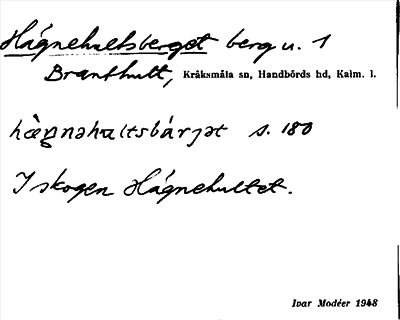 Hágnehultsberget berg u. 1
Branthult, Kråksmåla sn, Handbörds hd, Kalm. l.
hὰgnəhultsbárjət s. 180
I skogen Hágnehultet.
Ivar Modéer 1948